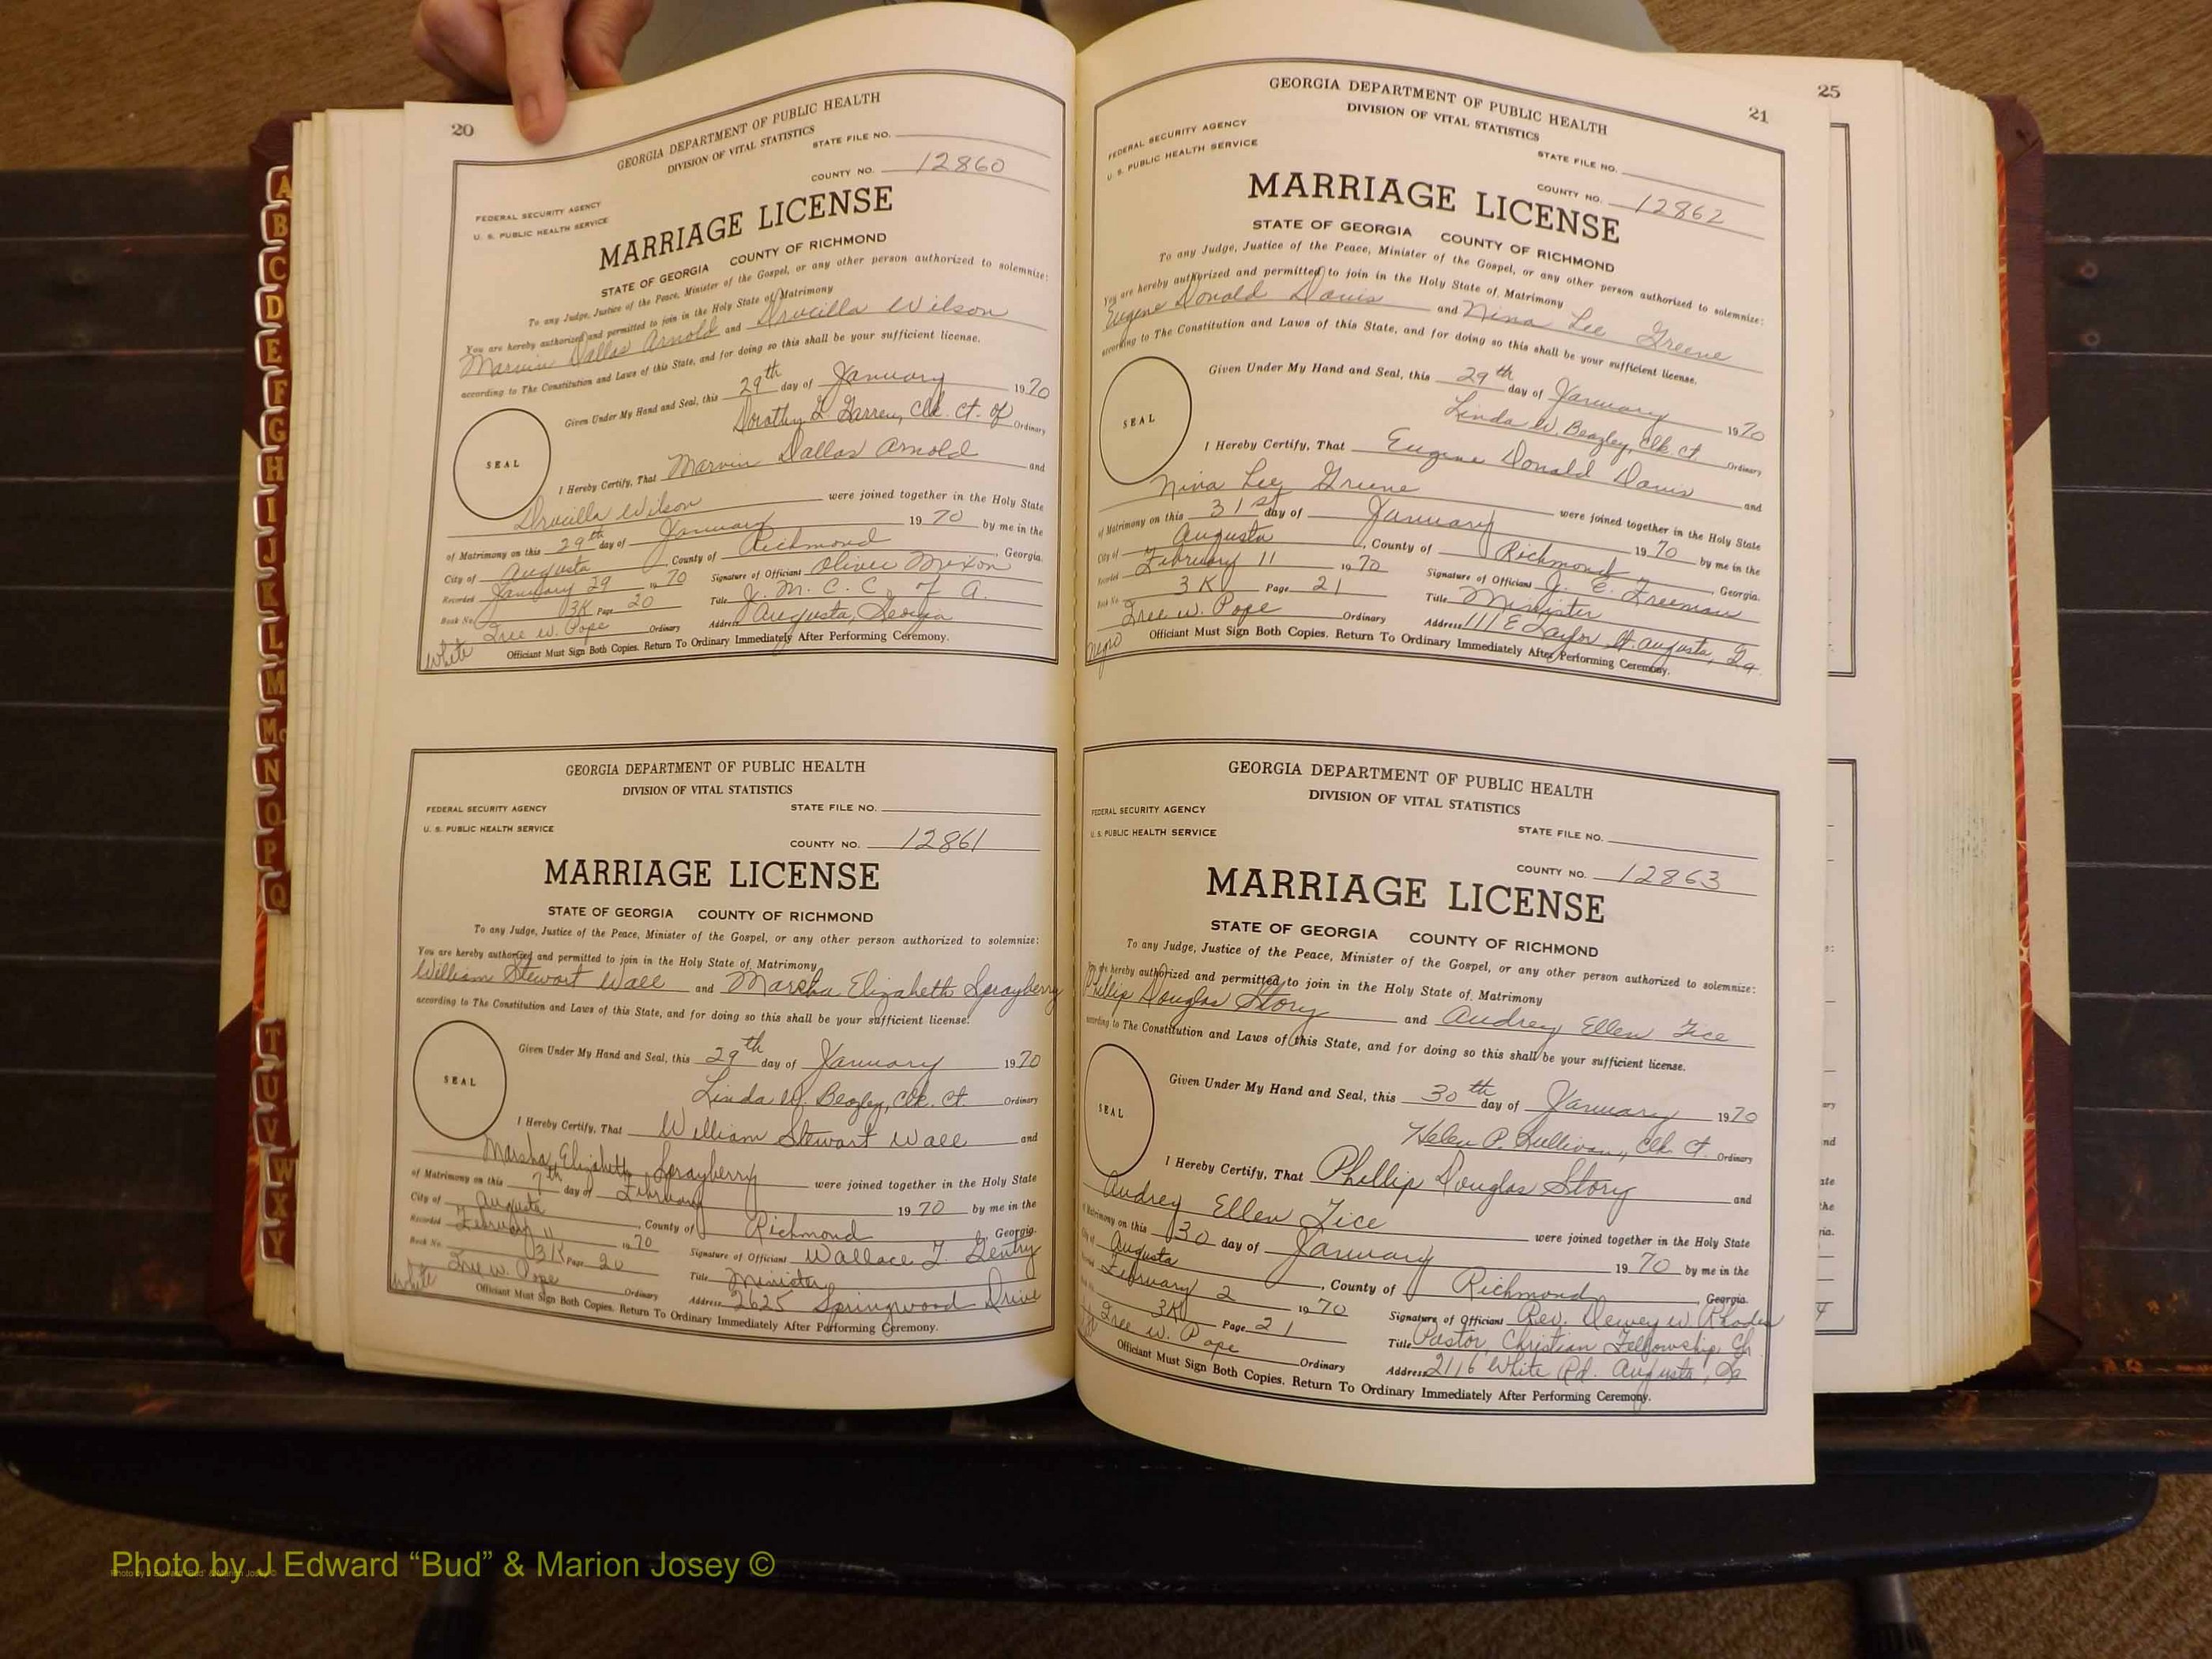 20
GEORGIA DEPARTMENT OF PUBLIC HEALTH
DIVISION OF VITAL STATISTICS
STATE FILE NO.
COUNTY NO. 12860
FEDERAL SECURITY AGENCY
U. S. PUBLIC HEALTH SERVICE
MARRIAGE LICENSE
STATE OF GEORGIA COUNTY OF RICHMOND
To any Judge, Justice of the Peace, Minister of the Gospel, or any other person authorized to solemnize:
You are hereby authorized and permitted to join in the Holy State of Matrimony
Marvin Dallas Arnold and Drucilla Wilson
according to The Constitution and Laws of this State, and for doing so this shall be your sufficient license.
Given Under My Hand and Seal, this 29th day of January 1970
Dorothy L. Garren, Clk. Ct. of Ordinary
SEAL
I Hereby Certify, That Marvin Dallas Arnold and
Drucilla Wilson were joined together in the Holy State
of Matrimony on this 29th day of January 1970 by me in the
City of Augusta, County of Richmond, Georgia.
Recorded January 29 1970 Signature of Officiant Oliver Mixon
Book No. 3K Page 20 Title J. M. C. C. of A.
Tree W. Pope Ordinary Address Augusta, Georgia
White Officiant Must Sign Both Copies. Return To Ordinary Immediately After Performing Ceremony.
GEORGIA DEPARTMENT OF PUBLIC HEALTH
DIVISION OF VITAL STATISTICS
FEDERAL SECURITY AGENCY STATE FILE NO.
U. S. PUBLIC HEALTH SERVICE
COUNTY NO. 12861
MARRIAGE LICENSE
STATE OF GEORGIA COUNTY OF RICHMOND
To any Judge, Justice of the Peace, Minister of the Gospel, or any other person authorized to solemnize:
You are hereby authorized and permitted to join in the Holy State of Matrimony
William Stewart Wall and Marsha Elizabeth Sprayberry
according to The Constitution and Laws of this State, and for doing so this shall be your sufficient license.
Given Under My Hand and Seal, this 29th day of January 1970
Linda W. Beazley, Clk. Ct. Ordinary
SEAL
I Hereby Certify, That William Stewart Wall and
Marsha Elizabeth Sprayberry were joined together in the Holy State
of Matrimony on this 7th day of February 1970 by me in the
City of Augusta, County of Richmond, Georgia.
Recorded February 11 1970 Signature of Officiant Wallace L. Gentry
Book No. 3K Page 20 Title Minister
Tree W. Pope Ordinary Address 2625 Springwood Drive
White Officiant Must Sign Both Copies. Return To Ordinary Immediately After Performing Ceremony.
21
GEORGIA DEPARTMENT OF PUBLIC HEALTH
DIVISION OF VITAL STATISTICS
FEDERAL SECURITY AGENCY
U. S. PUBLIC HEALTH SERVICE
STATE FILE NO.
COUNTY NO. 12862
MARRIAGE LICENSE
STATE OF GEORGIA COUNTY OF RICHMOND
To any Judge, Justice of the Peace, Minister of the Gospel, or any other person authorized to solemnize:
You are hereby authorized and permitted to join in the Holy State of Matrimony
Eugene Donald Davis and Nina Lee Greene
according to The Constitution and Laws of this State, and for doing so this shall be your sufficient license.
Given Under My Hand and Seal, this 29th day of January 1970
Linda W. Beazley, Clk. Ct. Ordinary
SEAL
I Hereby Certify, That Eugene Donald Davis and
Nina Lee Greene were joined together in the Holy State
of Matrimony on this 31st day of January 1970 by me in the
City of Augusta, County of Richmond, Georgia.
Recorded February 11 1970 Signature of Officiant J. E. Freeman
Book No. 3K Page 21 Title Minister
Tree W. Pope Ordinary Address 111 E Taylor St. Augusta, Ga.
Negro Officiant Must Sign Both Copies. Return To Ordinary Immediately After Performing Ceremony.
GEORGIA DEPARTMENT OF PUBLIC HEALTH
DIVISION OF VITAL STATISTICS
FEDERAL SECURITY AGENCY
U. S. PUBLIC HEALTH SERVICE
STATE FILE NO.
COUNTY NO. 12863
MARRIAGE LICENSE
STATE OF GEORGIA COUNTY OF RICHMOND
To any Judge, Justice of the Peace, Minister of the Gospel, or any other person authorized to solemnize:
You are hereby authorized and permitted to join in the Holy State of Matrimony
Phillip Douglas Story and Audrey Ellen Tice
according to The Constitution and Laws of this State, and for doing so this shall be your sufficient license.
Given Under My Hand and Seal, this 30th day of January 1970
Helen P. Sullivan, Clk. Ct. Ordinary
SEAL
I Hereby Certify, That Phillip Douglas Story and
Audrey Ellen Tice were joined together in the Holy State
of Matrimony on this 30 day of January 1970 by me in the
City of Augusta, County of Richmond, Georgia.
February 2 1970 Signature of Officiant Rev. Dewey W. Rhodes
3K Page 21 Title Pastor, Christian Fellowship Ch
Tree W. Pope Ordinary Address 2116 White Rd. Augusta, Ga
Officiant Must Sign Both Copies. Return To Ordinary Immediately After Performing Ceremony.
25
A
B
C
D
E
F
G
H
I
J
K
L
M
Mc
N
O
P
Q
T
U
V
W
X
Y
Photo by J Edward “Bud” & Marion Josey ©
Photo by J Edward "Bud" & Marion Josey ©